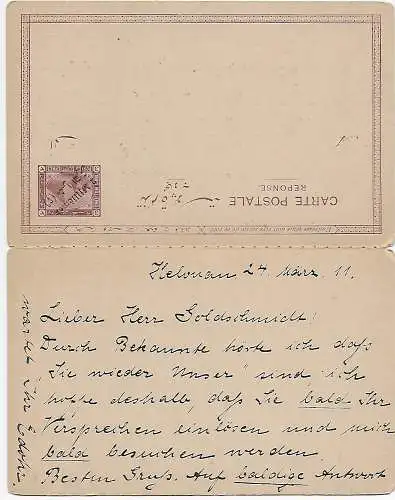 CARTE POSTALE
RÉPONSE
Helouan 24 März 11.
Lieber Herr Goldschmidt!
Durch Bekannte hörte ich daß
„Sie wieder Unser" sind ich
hoffe deshalb, daß Sie bald Ihr
Versprechen einlösen und mich
bald besuchen werden.
Besten Gruß. Auf baldige Antwort
wartet Ihr